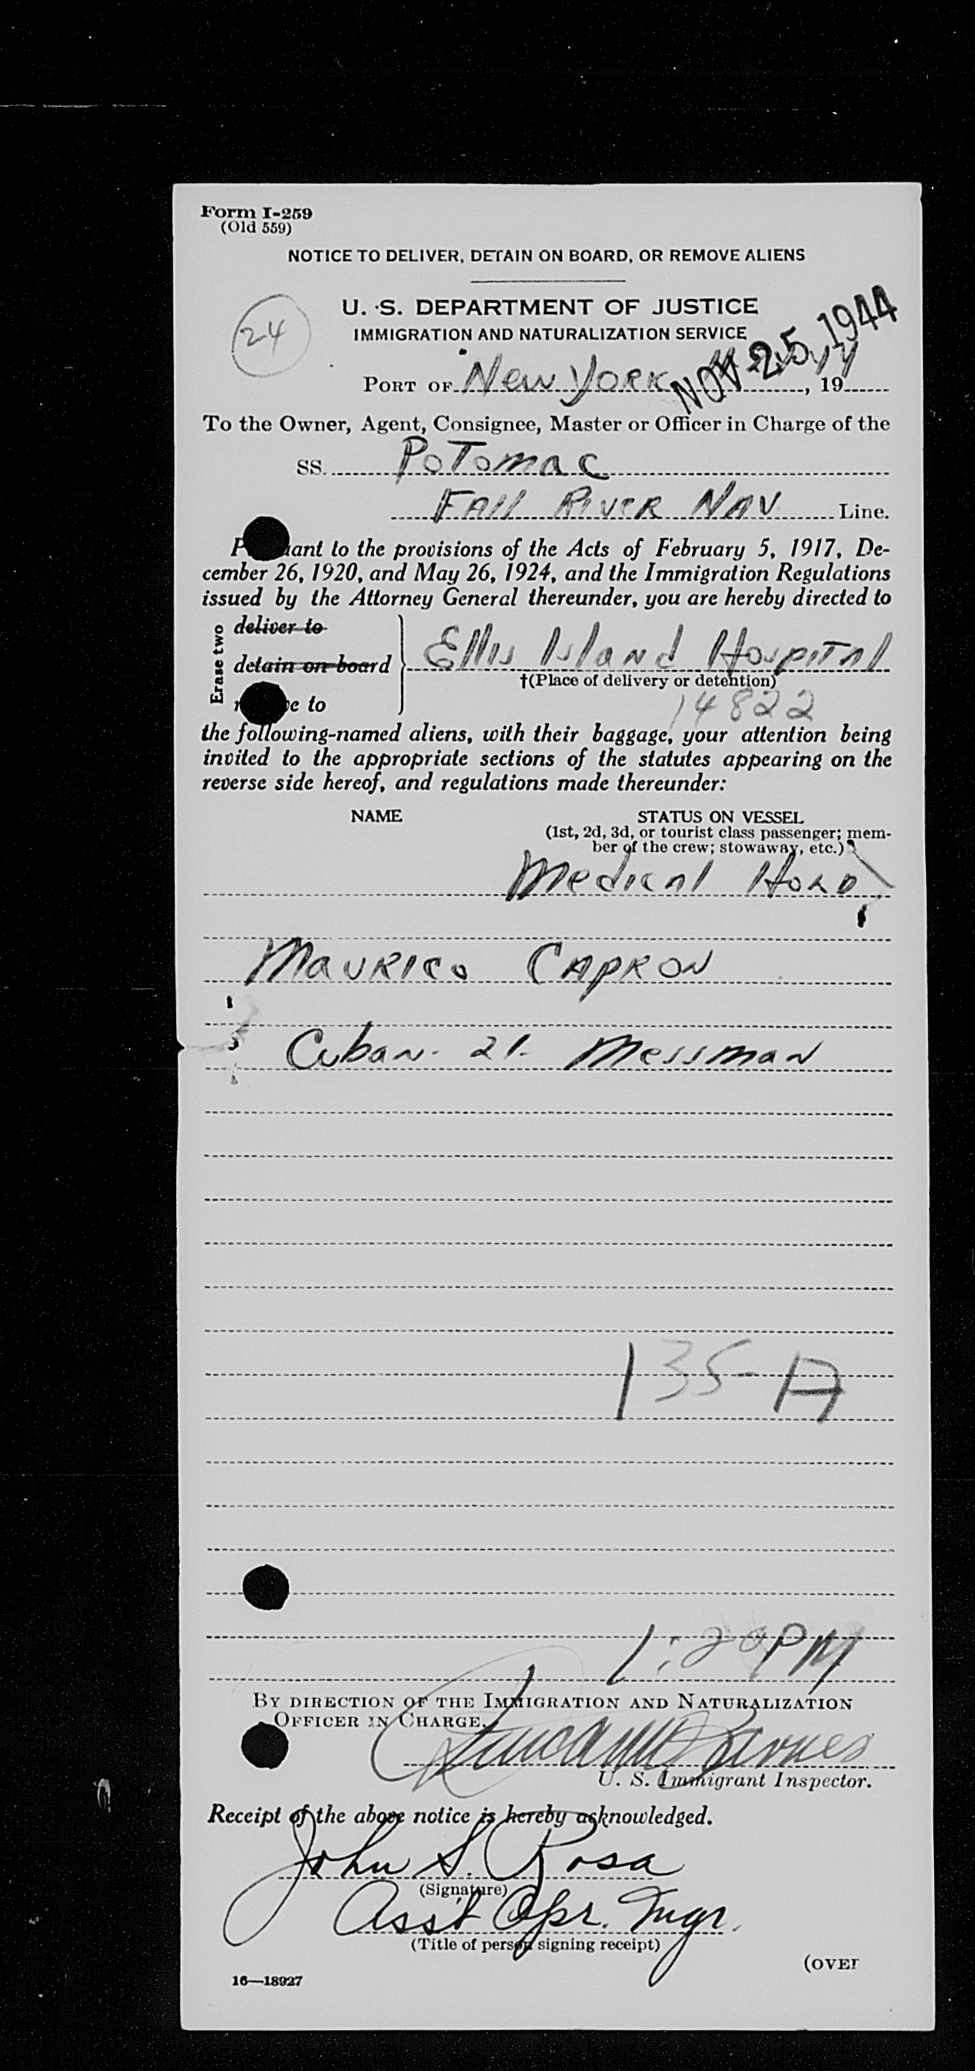 Form I-259
(Old 559)
NOTICE TO DELIVER, DETAIN ON BOARD, OR REMOVE ALIENS
U. S. DEPARTMENT OF JUSTICE
24
IMMIGRATION AND NATURALIZATION SERVICE
NOV 25 1944
PORT OF New York, 1944
To the Owner, Agent, Consignee, Master or Officer in Charge of the
SS. Potomac
Fall River Nav Line.
P ant to the provisions of the Acts of February 5, 1917, De-
cember 26, 1920, and May 26, 1924, and the Immigration Regulations
issued by the Attorney General thereunder, you are hereby directed to
Erase two
deliver to
detain on board
Ellis Island Hospital
†(Place of delivery or detention)
r e to
14822
the following-named aliens, with their baggage, your attention being
invited to the appropriate sections of the statutes appearing on the
reverse side hereof, and regulations made thereunder:
NAME STATUS ON VESSEL
(1st, 2d, 3d, or tourist class passenger; mem-
ber of the crew; stowaway, etc.)
Medical Hold
Maurico Capron
Cuban - 21 - Messman
135-A
1:20 PM
BY DIRECTION OF THE IMMIGRATION AND NATURALIZATION
OFFICER IN CHARGE.
Barnes
U. S. Immigrant Inspector.
Receipt of the above notice is hereby acknowledged.
John S. Rosa
(Signature)
Ass't Opr. Mgr.
(Title of person signing receipt)
(OVER
16—18927